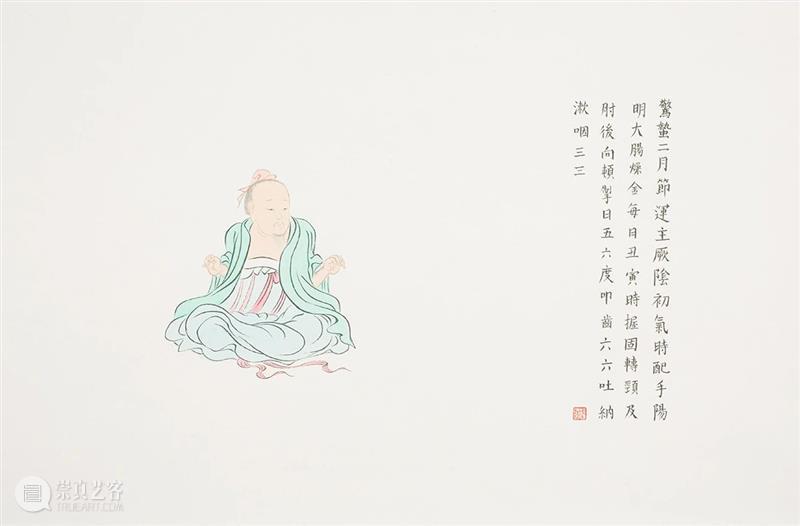 驚蟄二月節運主厥陰初氣時配手陽
明大腸燥金每日丑寅時握固轉頸及
肘後向頓掣日五六度叩齒六六吐納
漱咽三三
崇真艺客
WWW.TRUEART.COM